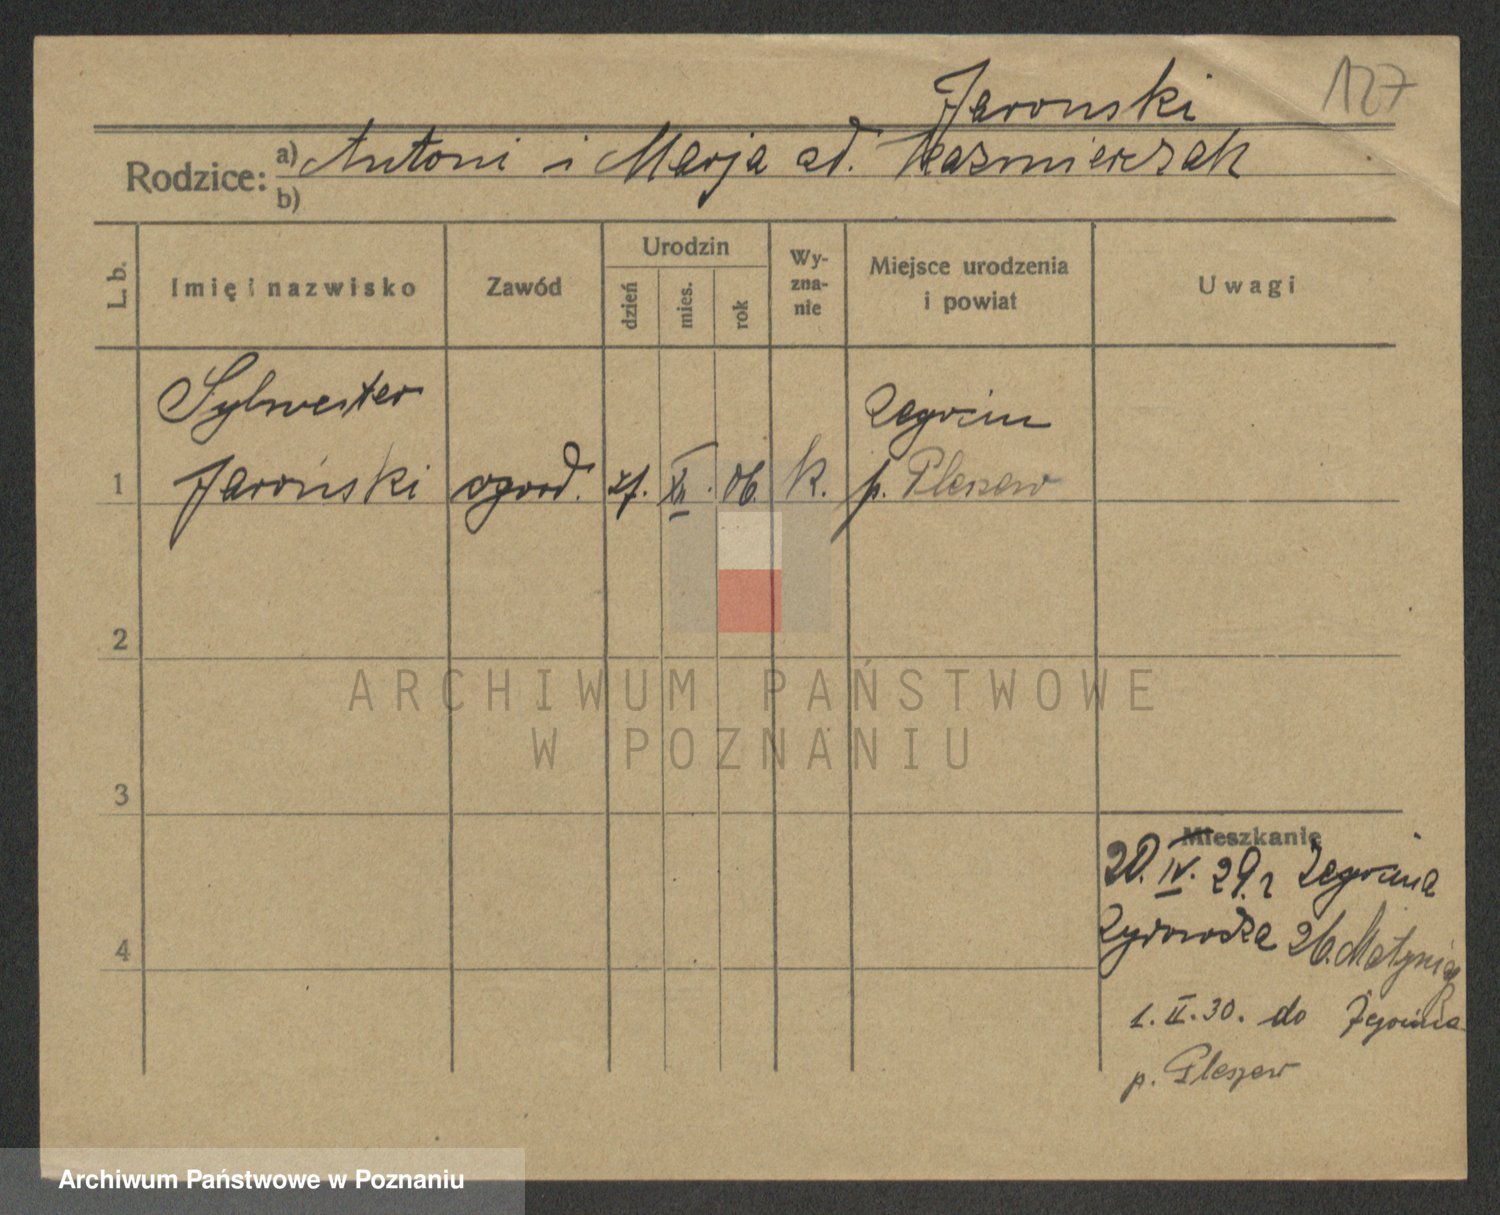 127
Jaroński
Rodzice: a) Antoni i Marja od. Kaźmierczak
b)
L. b.
Imię i nazwisko
Zawód
Urodzin
dzień
mies.
rok
Wy-
zna-
nie
Miejsce urodzenia
i powiat
Uwagi
Sylwester
Jaroński
ogrod.
XII.
06.
k.
Żegocin
p. Pleszew
1
2
3
4
Mieszkanie
20. IV. 29. r Żegocina
Żydowska 26.
1. II. 30. do Żegocina
p. Pleszew
ARCHIWUM PAŃSTWOWE
W POZNANIU
Archiwum Państwowe w Poznaniu